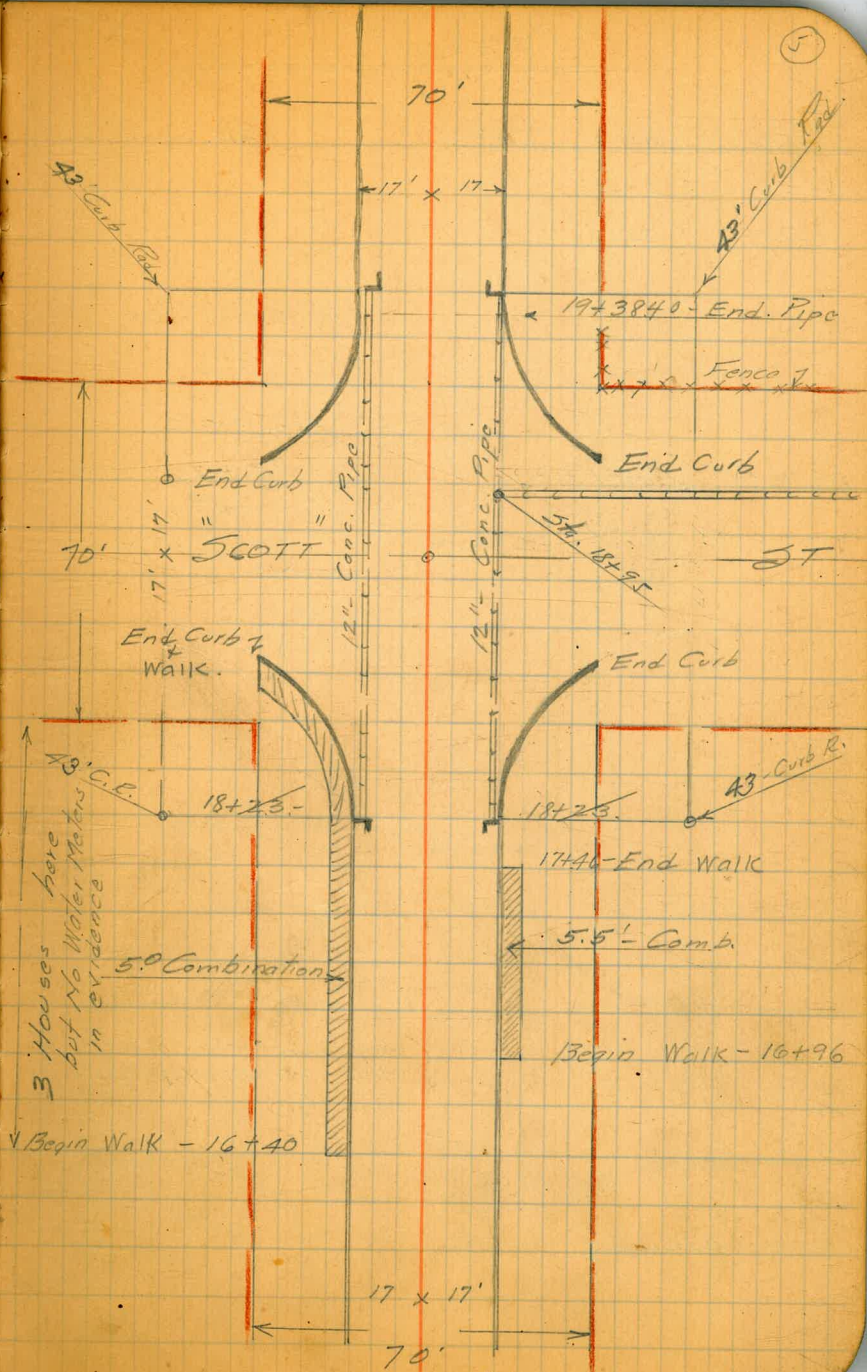 5
70'
17' x 17
43' Curb Rad
43' Curb Rad
19+3840 - End. Pipe
Fence
End Curb
End Curb
12"- Conc. Pipe
12"- Conc. Pipe
Sta. 18+95
70'
17' x 17'
"SCOTT" ST
End Curb
+
Walk.
End Curb
43' C.R.
43' Curb R.
18+23.-
18+23.
17+46-End Walk
5.5'- Comb.
5.0 Combination
3 Houses here
but No Water Meters
in evidence
Begin Walk - 16+96
Begin Walk - 16+40
17 x 17'
70'